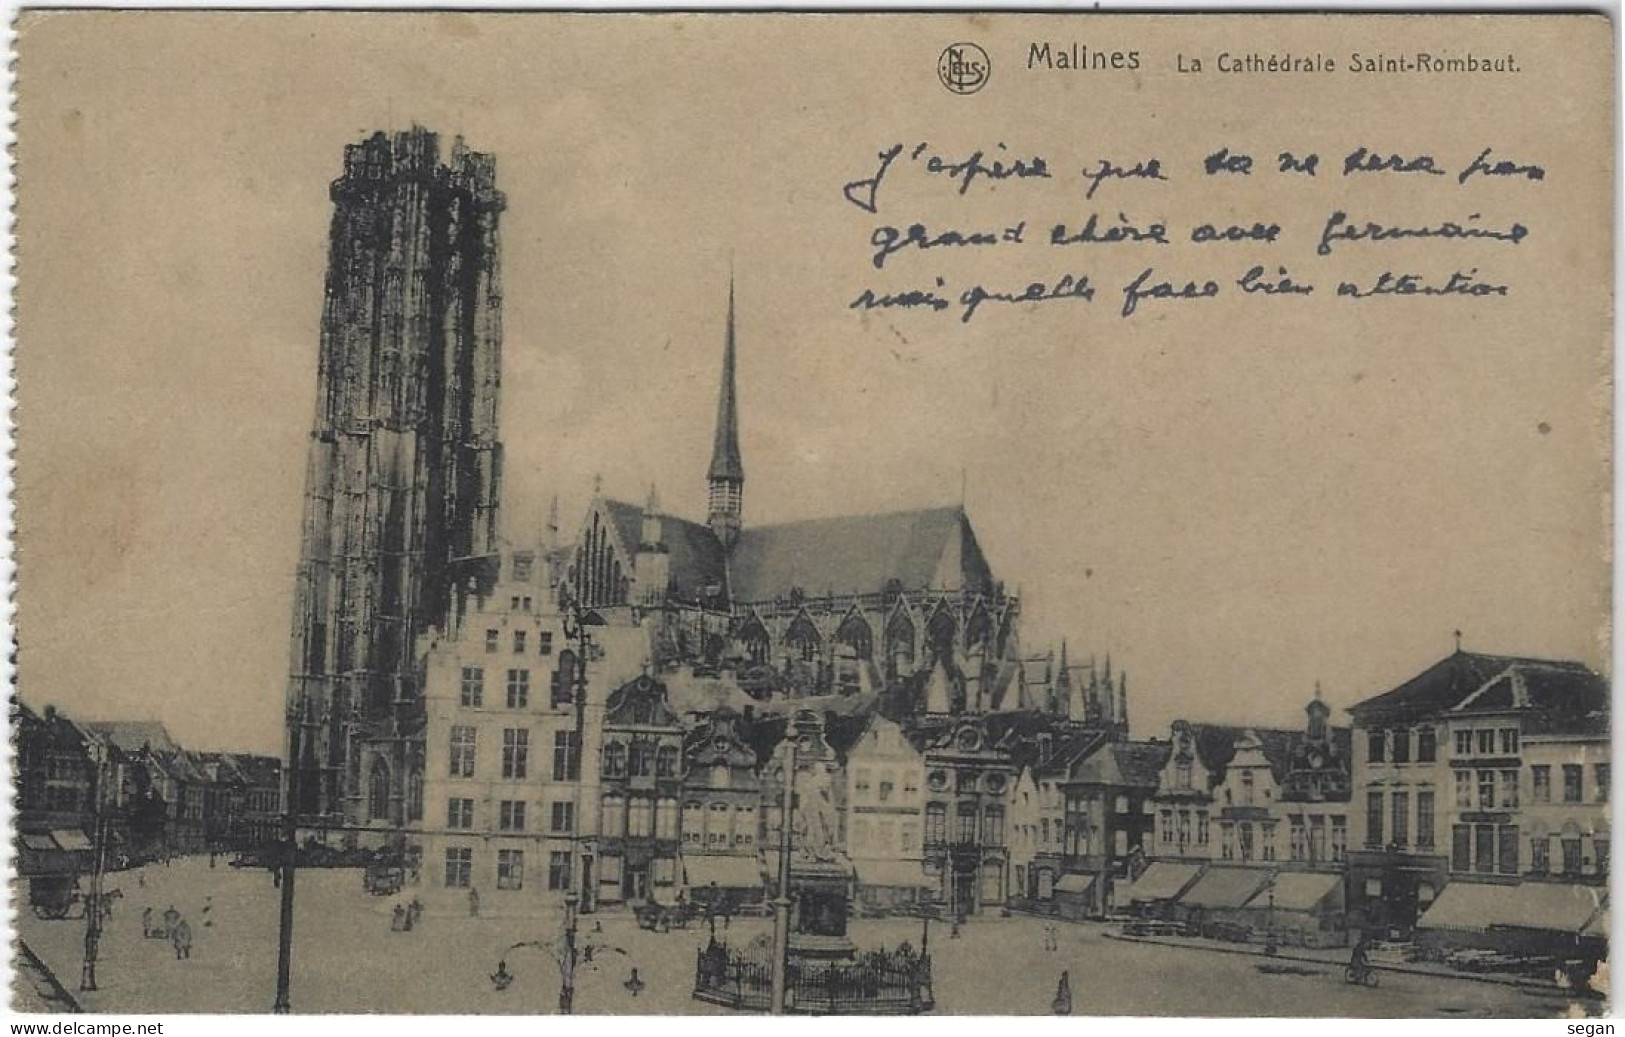 NELS
Malines La Cathédrale Saint-Rombaut.
J'espère que tu ne sera pas
grand chère avec Germaine
mais quelle fasse bien attention
www.delcampe.net
segan